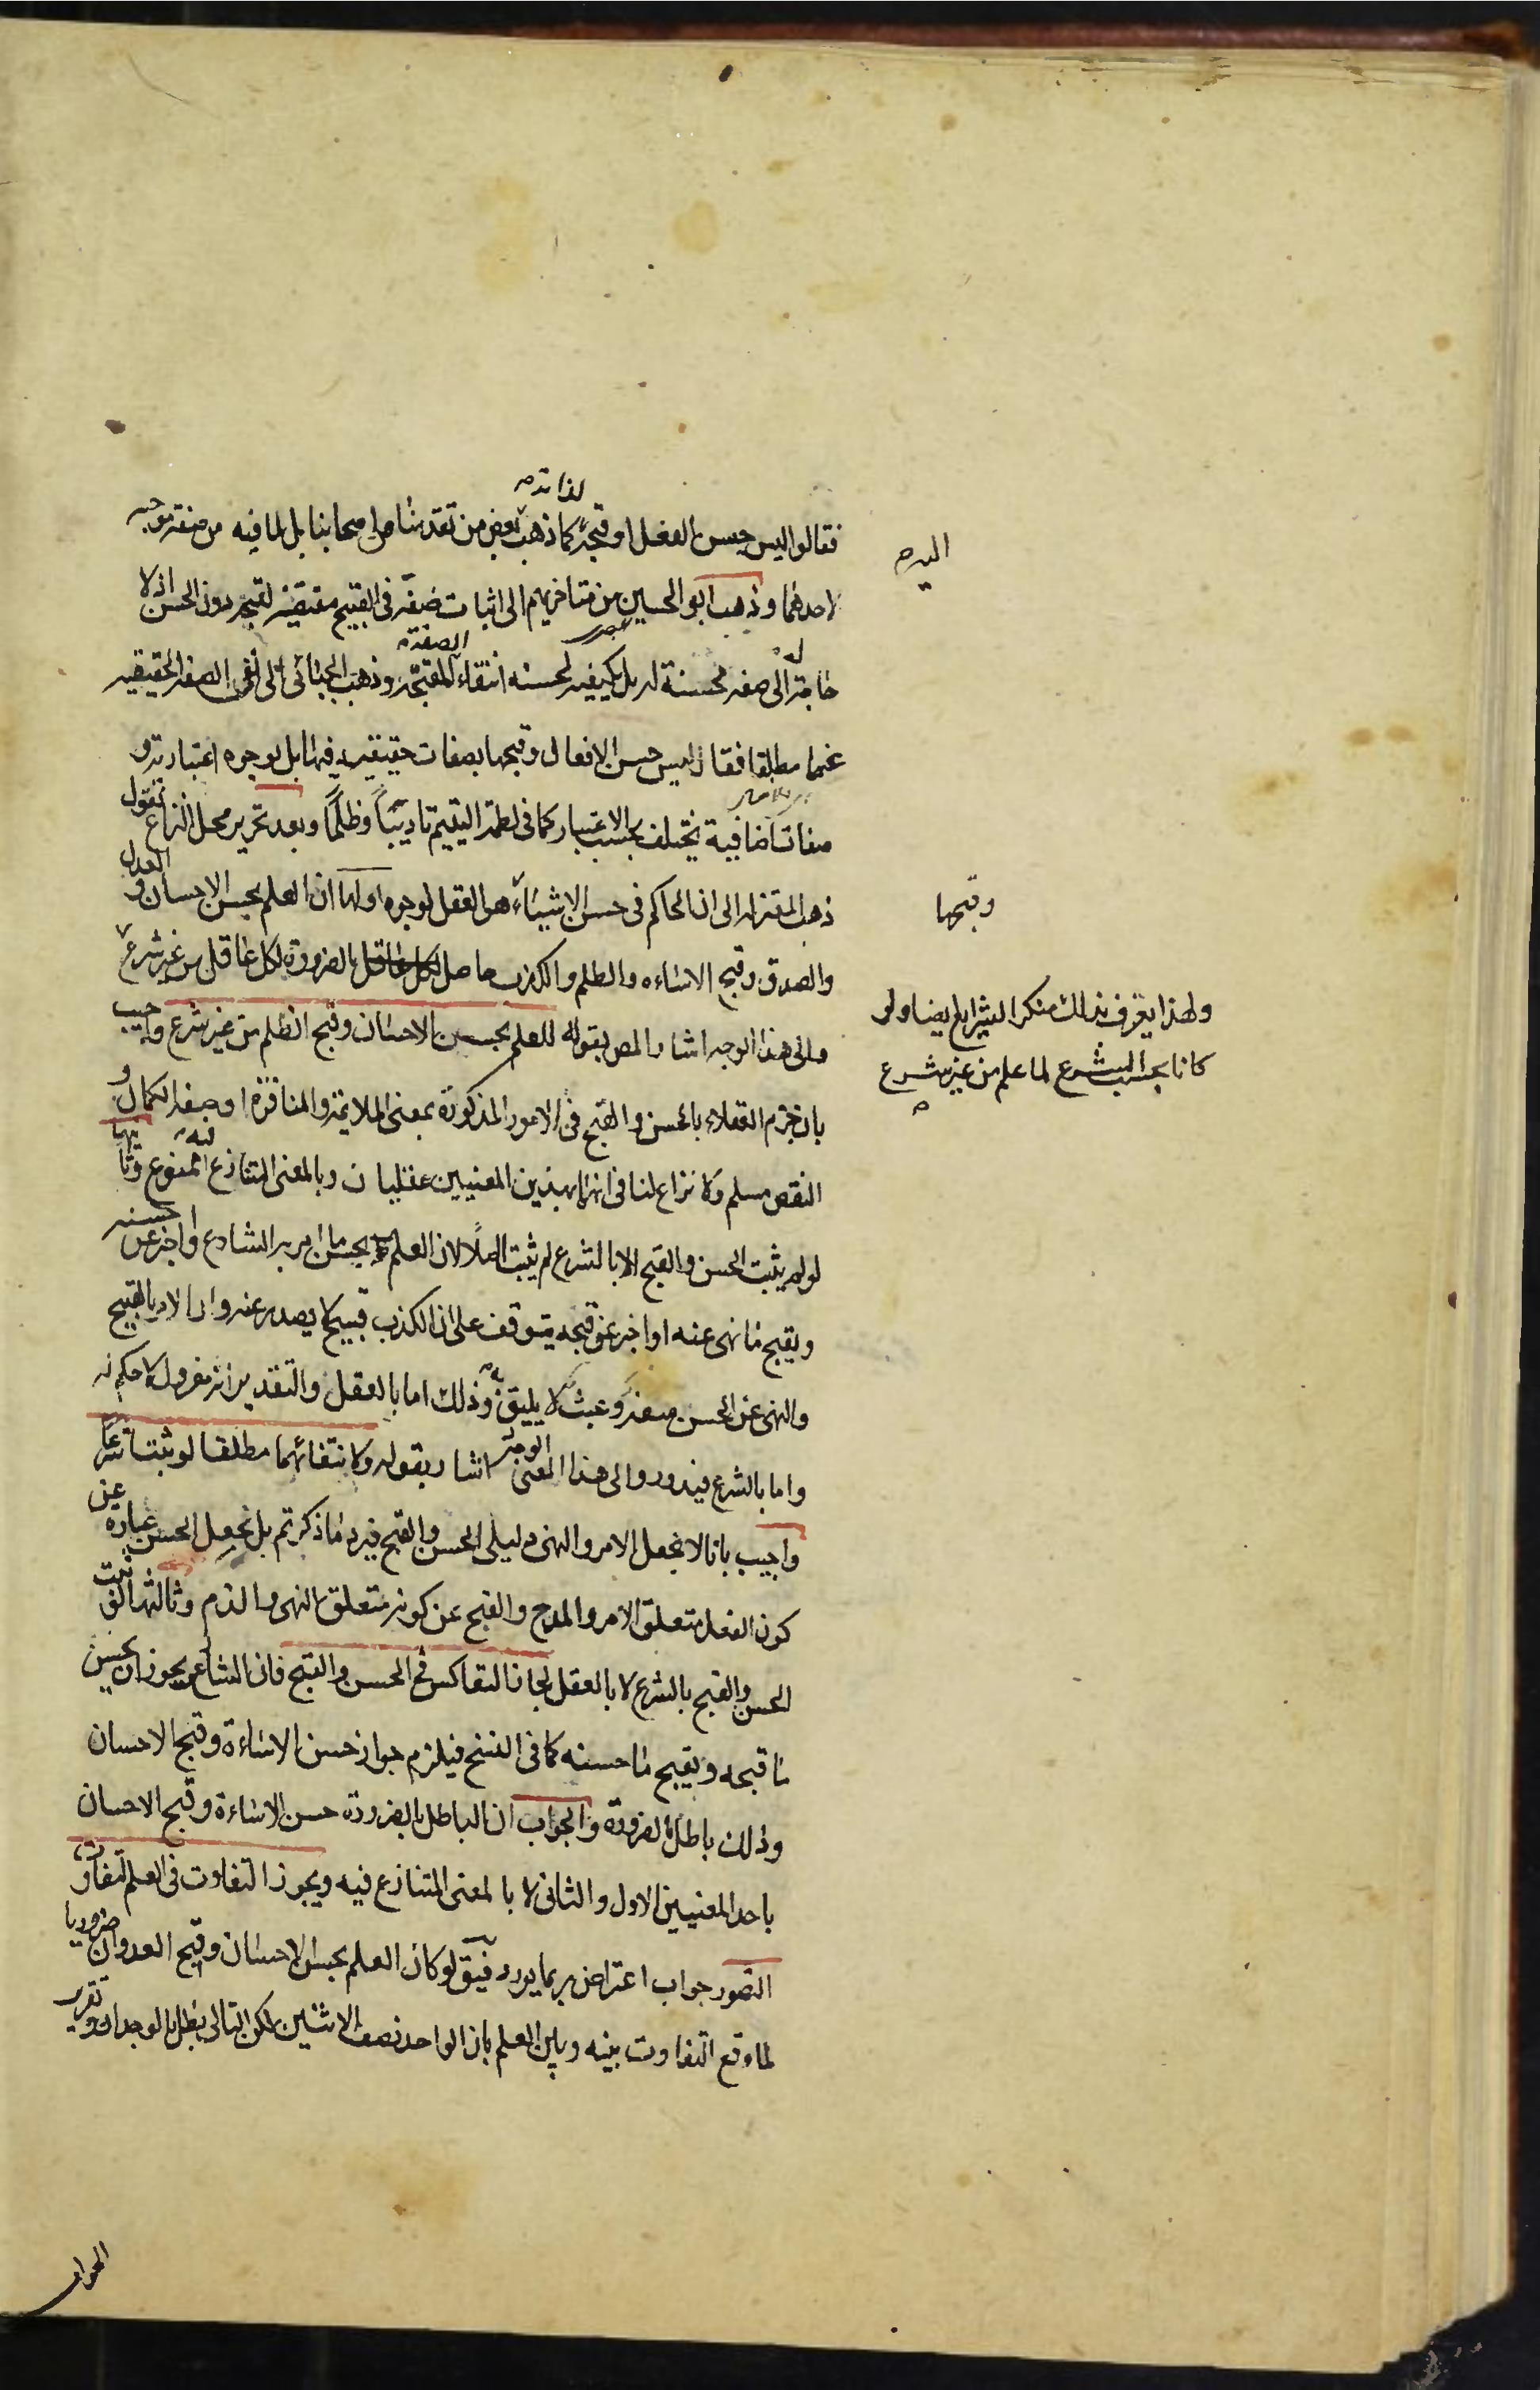 لذاته
فقالوا ليس حسن الفعل او قبحه كما ذهب بعض من تقدمنا من اصحابنا بل لما فيه من صفة موجبه
اليه
لاحدهما وذهب ابو الحسين من متاخريهم الى اثبات صفة في القبيح مقتضية لقبحه دون الحسن اذ لا
حاجة الى صفة محسنة له بل يكفيه لحسنه انتفاء الصفة المقبحة وذهب الجبائي الى نفي الصفة الحقيقيه
عنهما مطلقا فقال ليس حسن الافعال وقبحها بصفات حقيقية فيها بل لوجوه اعتبارية و
صفات اضافية يختلف بحسب الاعتبار كما في لطمة اليتيم تاديبا وظلما وبعد تحرير محل النزاع نقول
ذهب المعتزلة الى ان الحاكم في حسن الاشياء هو العقل لوجوه اولها ان العلم بحسن الاحسان و العدل
وقبحها
والصدق وقبح الاساءه والظلم والكذب حاصل لكل عاقل بالضرورة لكل عاقل من غير شرع
ولهذا يعترف بذلك منكر الشرايع ايضا ولو
كانا بحسب الشرع لما علم من غير شرع
والى هذا الوجه اشار المص بقوله للعلم بحسن الاحسان وقبح الظلم من غير شرع واجيب
بان جزم العقلاء بالحسن والقبح في الامور المذكورة بمعنى الملايمة والمنافرة او صفة الكمال و
النقص مسلم ولا نزاع لنا في انهما بهذين المعنيين عقليان وبالمعنى المتنازع فيه ممنوع وثانيها
لو لم يثبت الحسن والقبح الا بالشرع لم يثبت اصلا لان العلم بحسن ما امر به الشارع او اخبر عن حسنه
ويقبح ما نهى عنه او اخبر عن قبحه يتوقف على ان الكذب قبيح لا يصدر عنه وان الامر بالقبيح
والنهى عن الحسن سفه وعبث لا يليق به وذلك اما بالعقل والتقدير انه معزول لا حكم له
واما بالشرع فيدور والى هذا المعنى الوجه اشار بقوله ولانتفائهما مطلقا لو ثبتا شرعا
واجيب بانا لا نجعل الامر والنهى دليلي الحسن والقبح فيرد ما ذكرتم بل نجعل الحسن عبارة عن
كون الفعل متعلق الامر والمدح والقبح عن كونه متعلق النهى والذم وثالثها لو ثبت
الحسن والقبح بالشرع لا بالعقل لجاز التعاكس في الحسن والقبح فان الشارع يجوز ان يحسن
ما قبحه ويقبح ما حسنه كما في النسخ فيلزم جواز حسن الاساءة وقبح الاحسان
وذلك باطل بالضرورة والجواب ان الباطل بالضرورة حسن الاساءة وقبح الاحسان
باحد المعنيين الاول والثاني لا بالمعنى المتنازع فيه ويجوز التفاوت في العلم لتفاوت
التصور جواب اعتراض بما يورد فيق لو كان العلم بحسن الاحسان وقبح العدوان ضروريا
لما وقع التفاوت بينه وبين العلم بان الواحد نصف الاثنين لكن التالى بطل بالوجدان وتقرير
الجواب